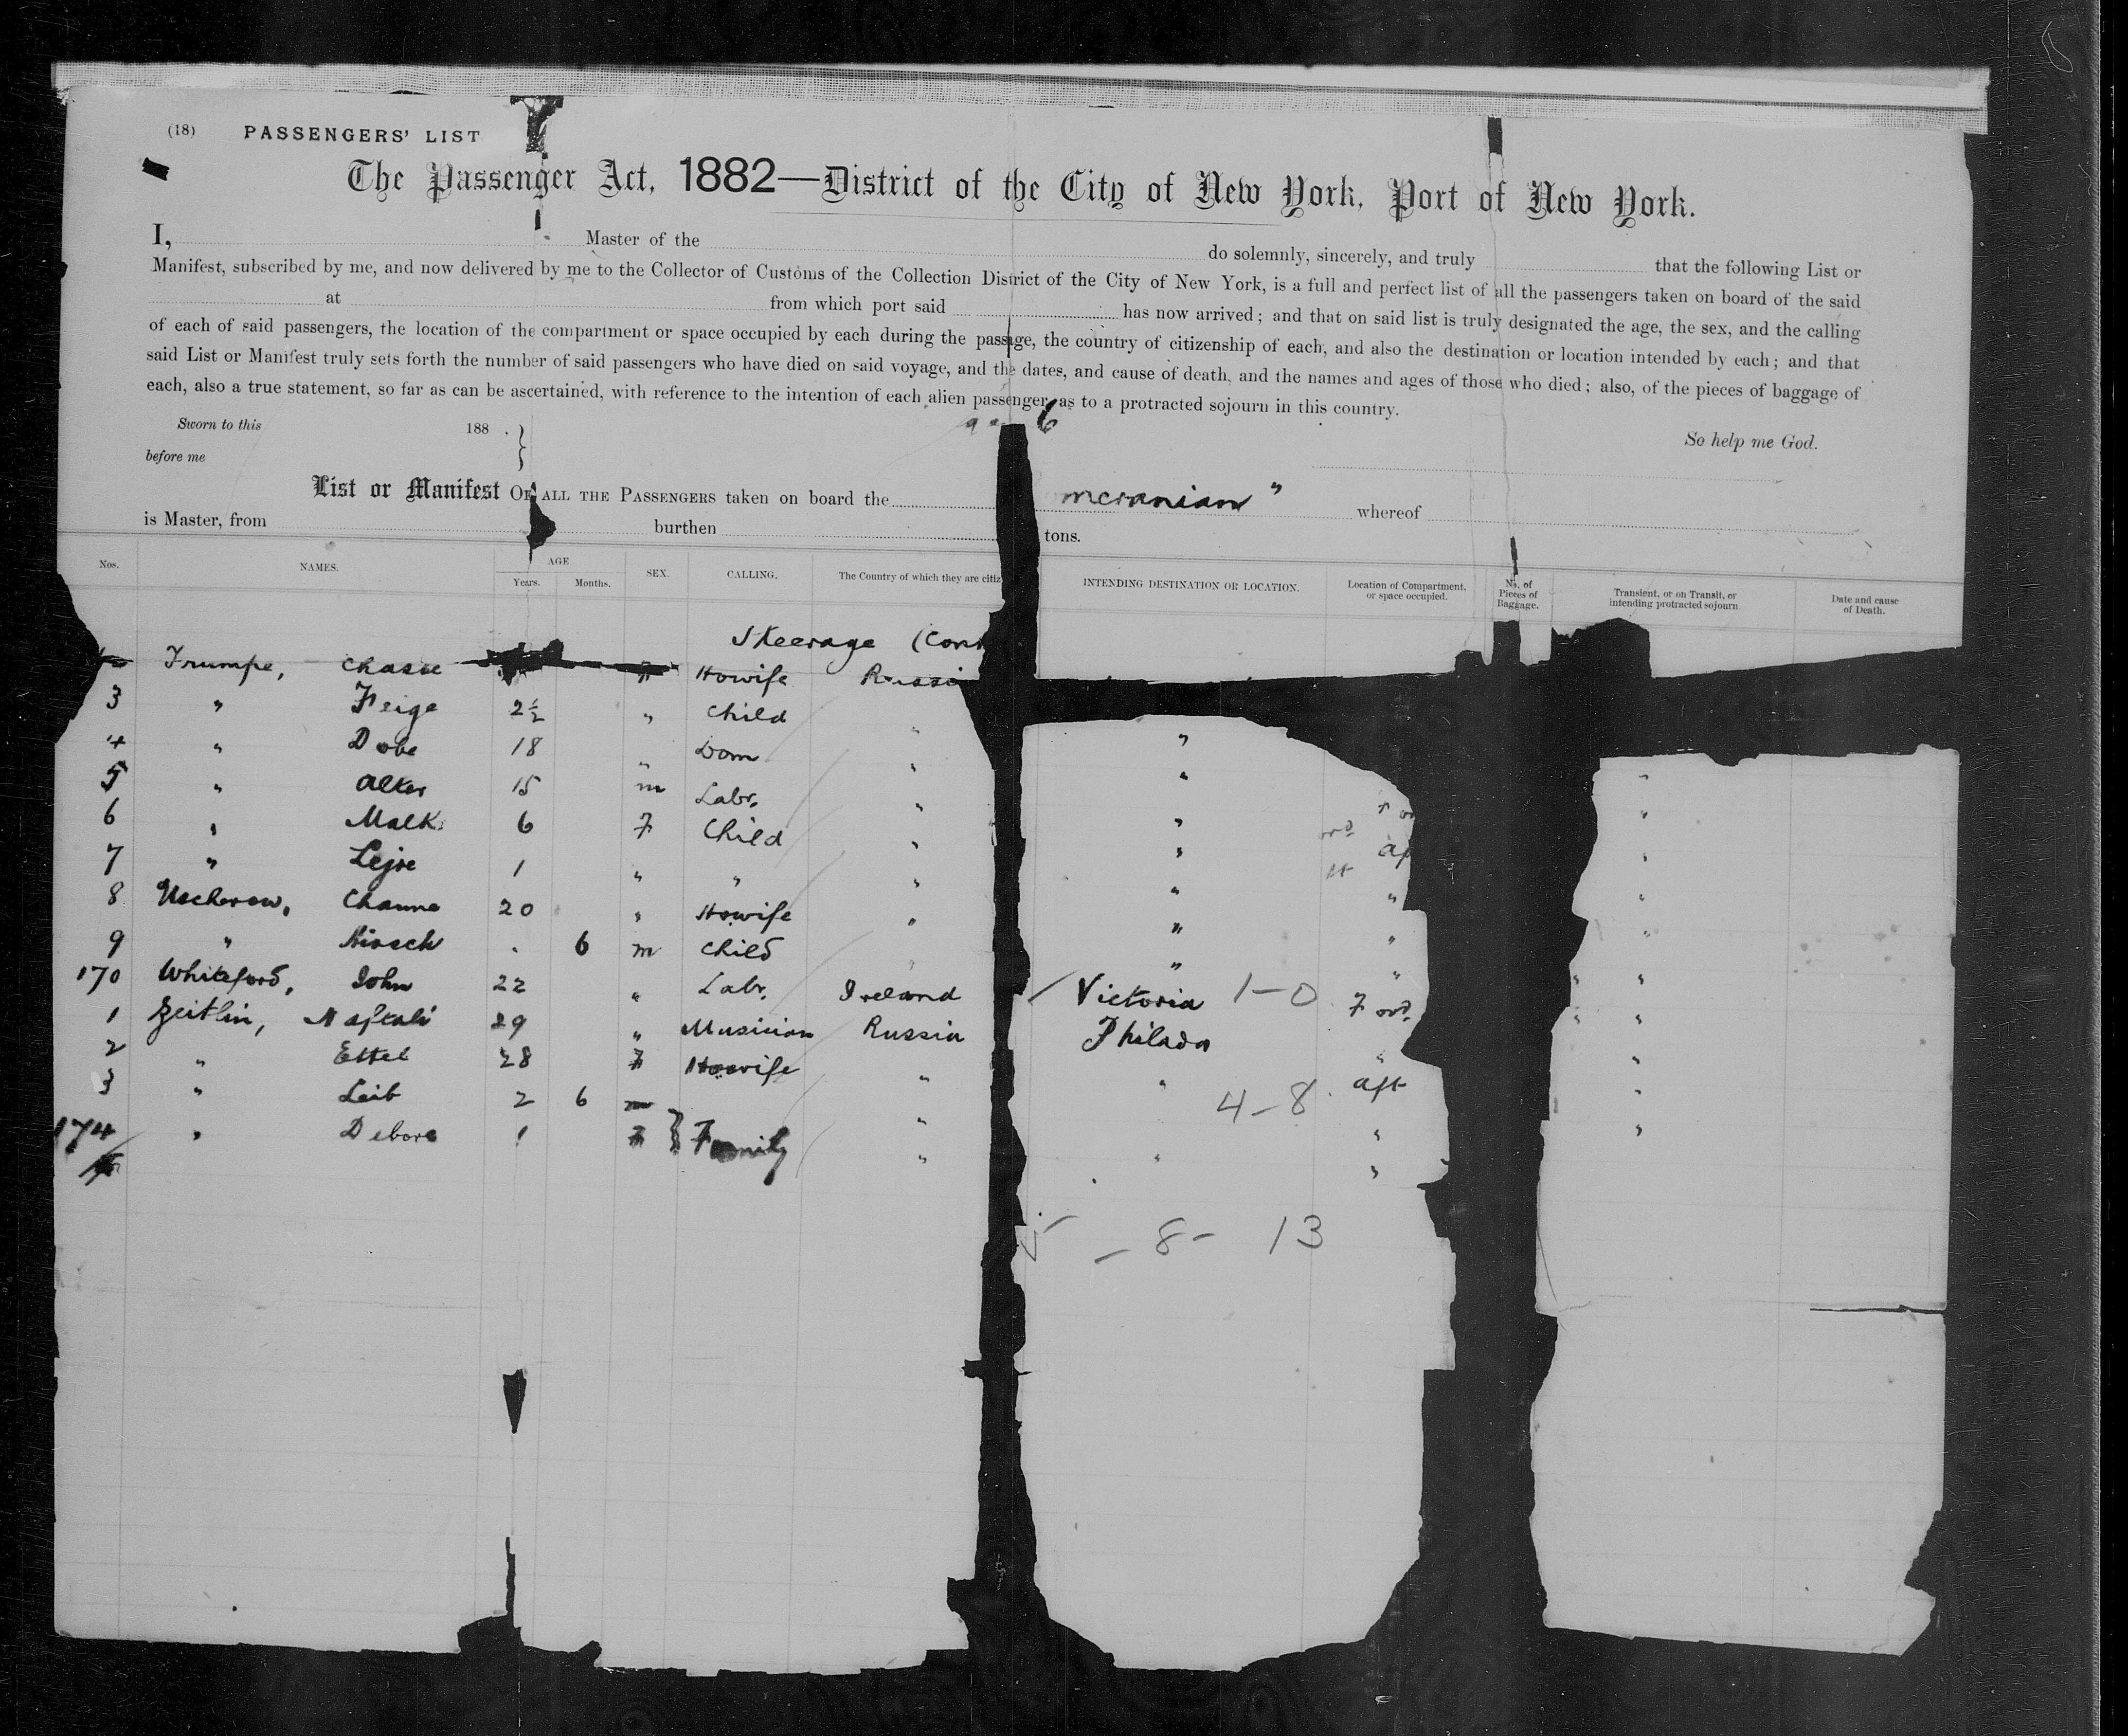 (18) PASSENGERS' LIST
The Passenger Act, 1882—District of the City of New York, Port of New York.
I, Master of the do solemnly, sincerely, and truly that the following List or
Manifest, subscribed by me, and now delivered by me to the Collector of Customs of the Collection District of the City of New York, is a full and perfect list of all the passengers taken on board of the said
at from which port said has now arrived; and that on said list is truly designated the age, the sex, and the calling
of each of said passengers, the location of the compartment or space occupied by each during the passage, the country of citizenship of each, and also the destination or location intended by each; and that
said List or Manifest truly sets forth the number of said passengers who have died on said voyage, and the dates, and cause of death, and the names and ages of those who died; also, of the pieces of baggage of
each, also a true statement, so far as can be ascertained, with reference to the intention of each alien passenger, as to a protracted sojourn in this country.
6
Sworn to this 188 .
So help me God.
before me
List or Manifest OF ALL THE PASSENGERS taken on board the meranian " whereof
is Master, from burthen tons.
Nos. NAMES. AGE Years. Months. SEX. CALLING. The Country of which they are citiz INTENDING DESTINATION OR LOCATION. Location of Compartment, or space occupied. No. of Pieces of Baggage. Transient, or on Transit, or intending protracted sojourn Date and cause of Death.
Steerage (Con
Trumpe, Chasse Howife Russi
3 " Feige 2½ " Child " "
4 " Dobe 18 " Dom " "
5 " Alter 15 m Labr. " "
6 " Malk 6 F Child " "
7 " Lejse 1 " " " "
8 Uscherow, Channe 20 " Howife " " "
9 " Hirsch . 6 m Child " " "
170 Whiteford, John 22 " Labr. Ireland Victoria 1-0 Ford.
1 Zeitlin, Naftali 29 " Musician Russia Philada " "
2 " Ettel 28 F Howife " " aft "
3 " Leib 2 6 m " 4-8 " "
174 " Debora 1 F } Family " " " "
- 8 - 13